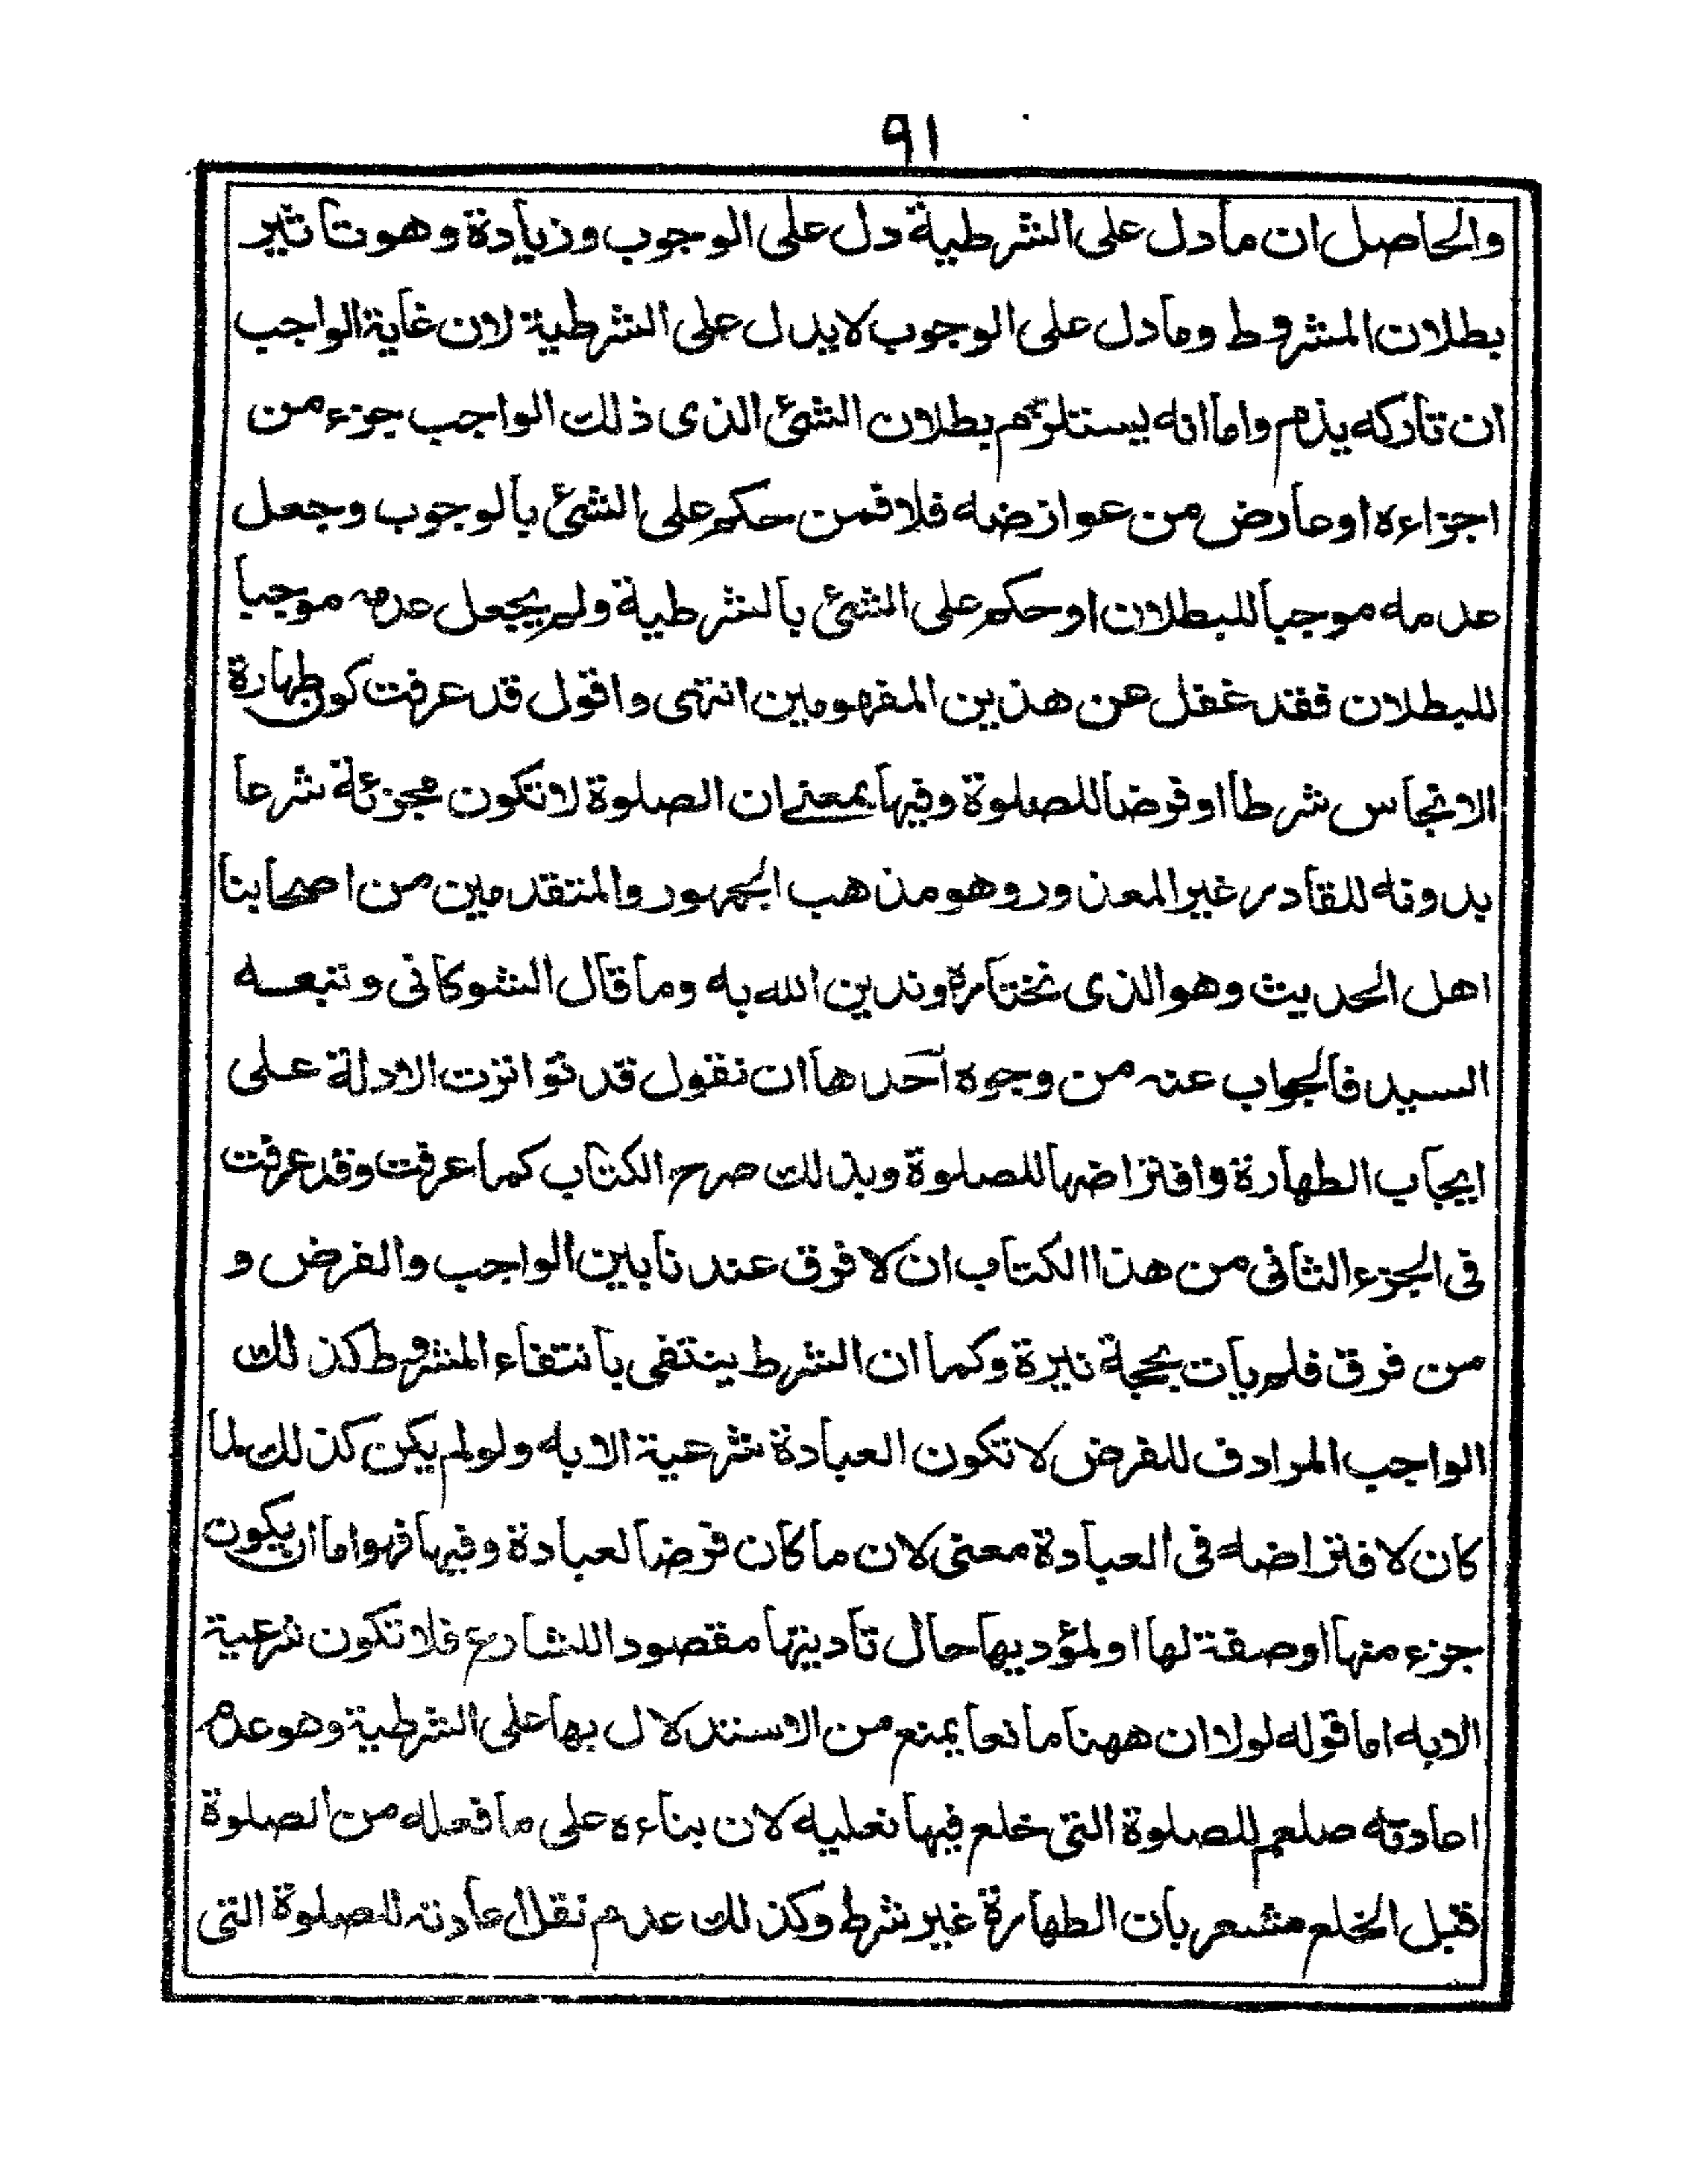 ٩١
والحاصل ان ما دل على الشرطية دل على الوجوب وزيادة وهو تاثير
بطلان المشروط وما دل على الوجوب لا يدل على الشرطية لان غاية الواجب
ان تاركه يذم واما انه يستلزم بطلان الشئ الذى ذلك الواجب جزء من
اجزاءه او عارض من عوارضه فلا فمن حكم على الشئ بالوجوب وجعل
عدمه موجبا للبطلان او حكم على الشئ بالشرطية ولم يجعل عدمه موجبا
للبطلان فقد غفل عن هذين المفهومين انتهى واقول قد عرفت كون طهارة
الانجاس شرطا او فرضا للصلوة وفيها بمعنے ان الصلوة لا تكون مجزئة شرعا
بدونه للقادر غير المعذور وهو مذهب الجمهور والمتقدمين من اصحابنا
اهل الحديث وهو الذى نختاره وندين الله به وما قال الشوكانى وتبعه
السيد فالجواب عنه من وجوه احدها ان نقول قد تواترت الادلة على
ايجاب الطهارة وافتراضها للصلوة وبذلك صرح الكتاب كما عرفت وقد عرفت
فى الجزء الثانى من هذا الكتاب ان لا فرق عندنا بين الواجب والفرض و
من فرق فلم يات بحجة نيرة وكما ان الشرط ينتفى بانتفاء المشروط كذلك
الواجب المرادف للفرض لا تكون العبادة شرعية الا به ولو لم يكن كذلك لما
كان لافتراضه فى العبادة معنى لان ما كان فرضا لعبادة وفيها فهو اما ان يكون
جزء منها او صفة لها او لمؤديها حال تاديتها مقصودا للشارع فلا تكون شرعية
الا به اما قوله لولا ان ههنا مانعا يمنع من الاستدلال بها على الشرطية وهو عدم
اعادته صلعم للصلوة التى خلع فيها نعليه لان بناءه على ما فعله من الصلوة
قبل الخلع مشعر بان الطهارة غير شرط وكذلك عدم نقل اعادته للصلوة التى